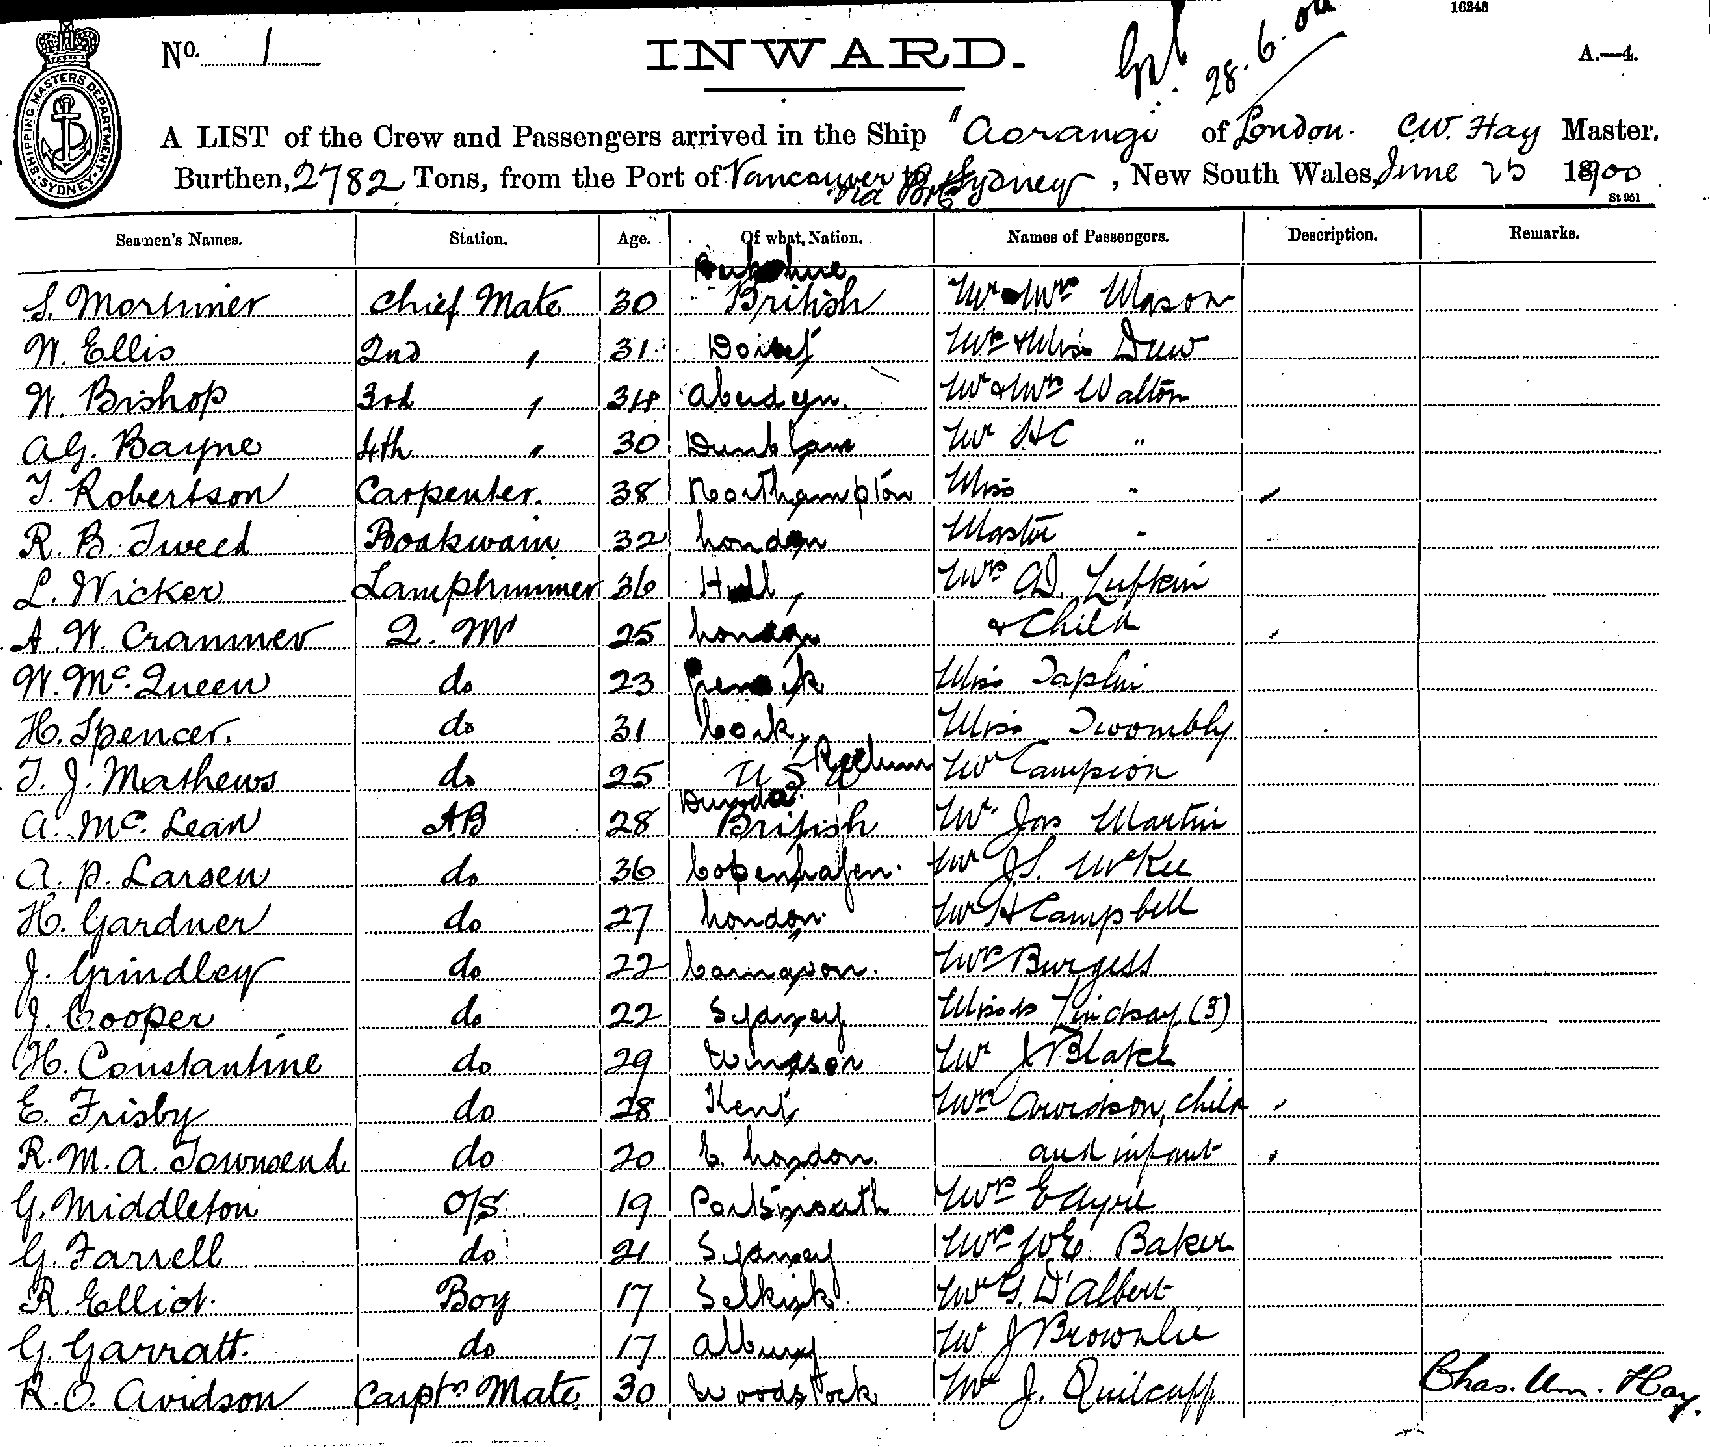 16248
No. 1 INWARD. 28.6.00 A.—4.
SHIPPING MASTERS DEPARTMENT SYDNEY
A LIST of the Crew and Passengers arrived in the Ship "Aorangi of London. C.W. Hay Master.
Burthen, 2782 Tons, from the Port of Vancouver to Sydney, New South Wales, June 25 1900
via
St 951
Seamen's Names. Station. Age. Of what Nation. Names of Passengers. Description. Remarks.
S. Mortimer Chief Mate 30 British Mr & Mrs Mason
W. Ellis 2nd " 31 Mrs & Miss Dew
W. Bishop 3rd " 34 Aberdeen. Mr & Mrs Walton
A.G. Bayne 4th " 30 Mr HC "
T. Robertson Carpenter. 38 Northampton Miss "
R. B. Tweed Boatswain 32 London Master "
L. Wicker Lamptrimmer 36 Hull, Mrs A.D. Lufkin
A. W. Cranmer Q. Mr 25 London & Child
W. Mc. Queen do 23 Miss Taplin
H. Spencer. do 31 Cork, Miss Twombly
T. J. Mathews do 25 U S Mr Campion
A. Mc. Lean AB 28 Dundee British Mr Jas Martin
A. P. Larsen do 36 Copenhagen. Mr J.S. McKee
H. Gardner do 27 London Mr H Campbell
J. Grindley do 22 Carnavon. Mrs Burgess
J. Cooper do 22 Sydney Misses Lindsay (3)
H. Constantine do 29 Mr J Blake
E. Frisby do 28 Kent, Mrs Arvidson, child
R. M. A. Townsend do 20 E. London. and infant
G. Middleton O/S 19 Portsmouth Mrs E Ayre
G. Farrell do 21 Sydney Mrs W.E. Baker
R. Elliot. Boy 17 Selkirk. Mr G. D'Albert
G. Garratt. do 17 Albury Mr J Brownlie
R. O. Avidson Carptrs Mate 30 Woodstock Mr J. Quilcaff Chas. Wm. Hay.